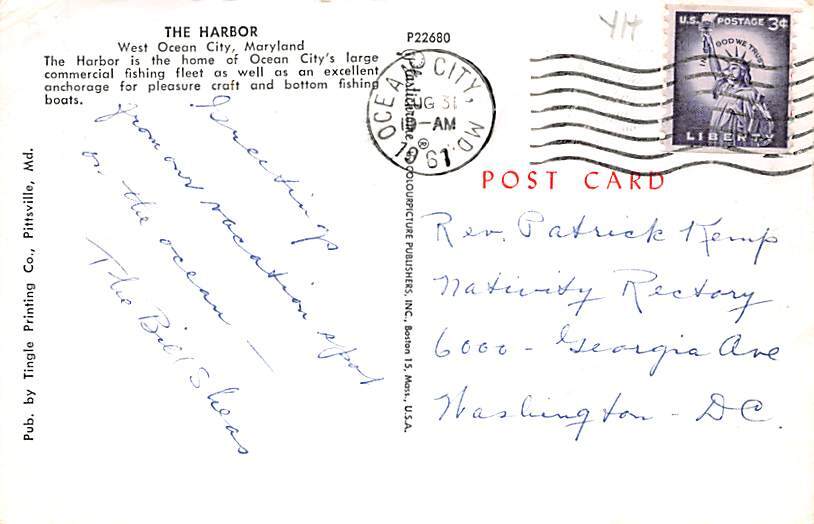 THE HARBOR
West Ocean City, Maryland
The Harbor is the home of Ocean City's large
commercial fishing fleet as well as an excellent
anchorage for pleasure craft and bottom fishing
boats.
P22680
Greetings
from our vacation spot
on the ocean —
The Bill Sheas
Pub. by Tingle Printing Co., Pittsville, Md.
Plastichrome ®
COLOURPICTURE PUBLISHERS, INC., Boston 15, Mass., U.S.A.
OCEAN CITY, MD.
AUG 31
AM
1961
U.S. POSTAGE 3¢
IN GOD WE TRUST
LIBERTY
POST CARD
Rev. Patrick Kemp
Nativity Rectory
6000 - Georgia Ave
Washington - DC.